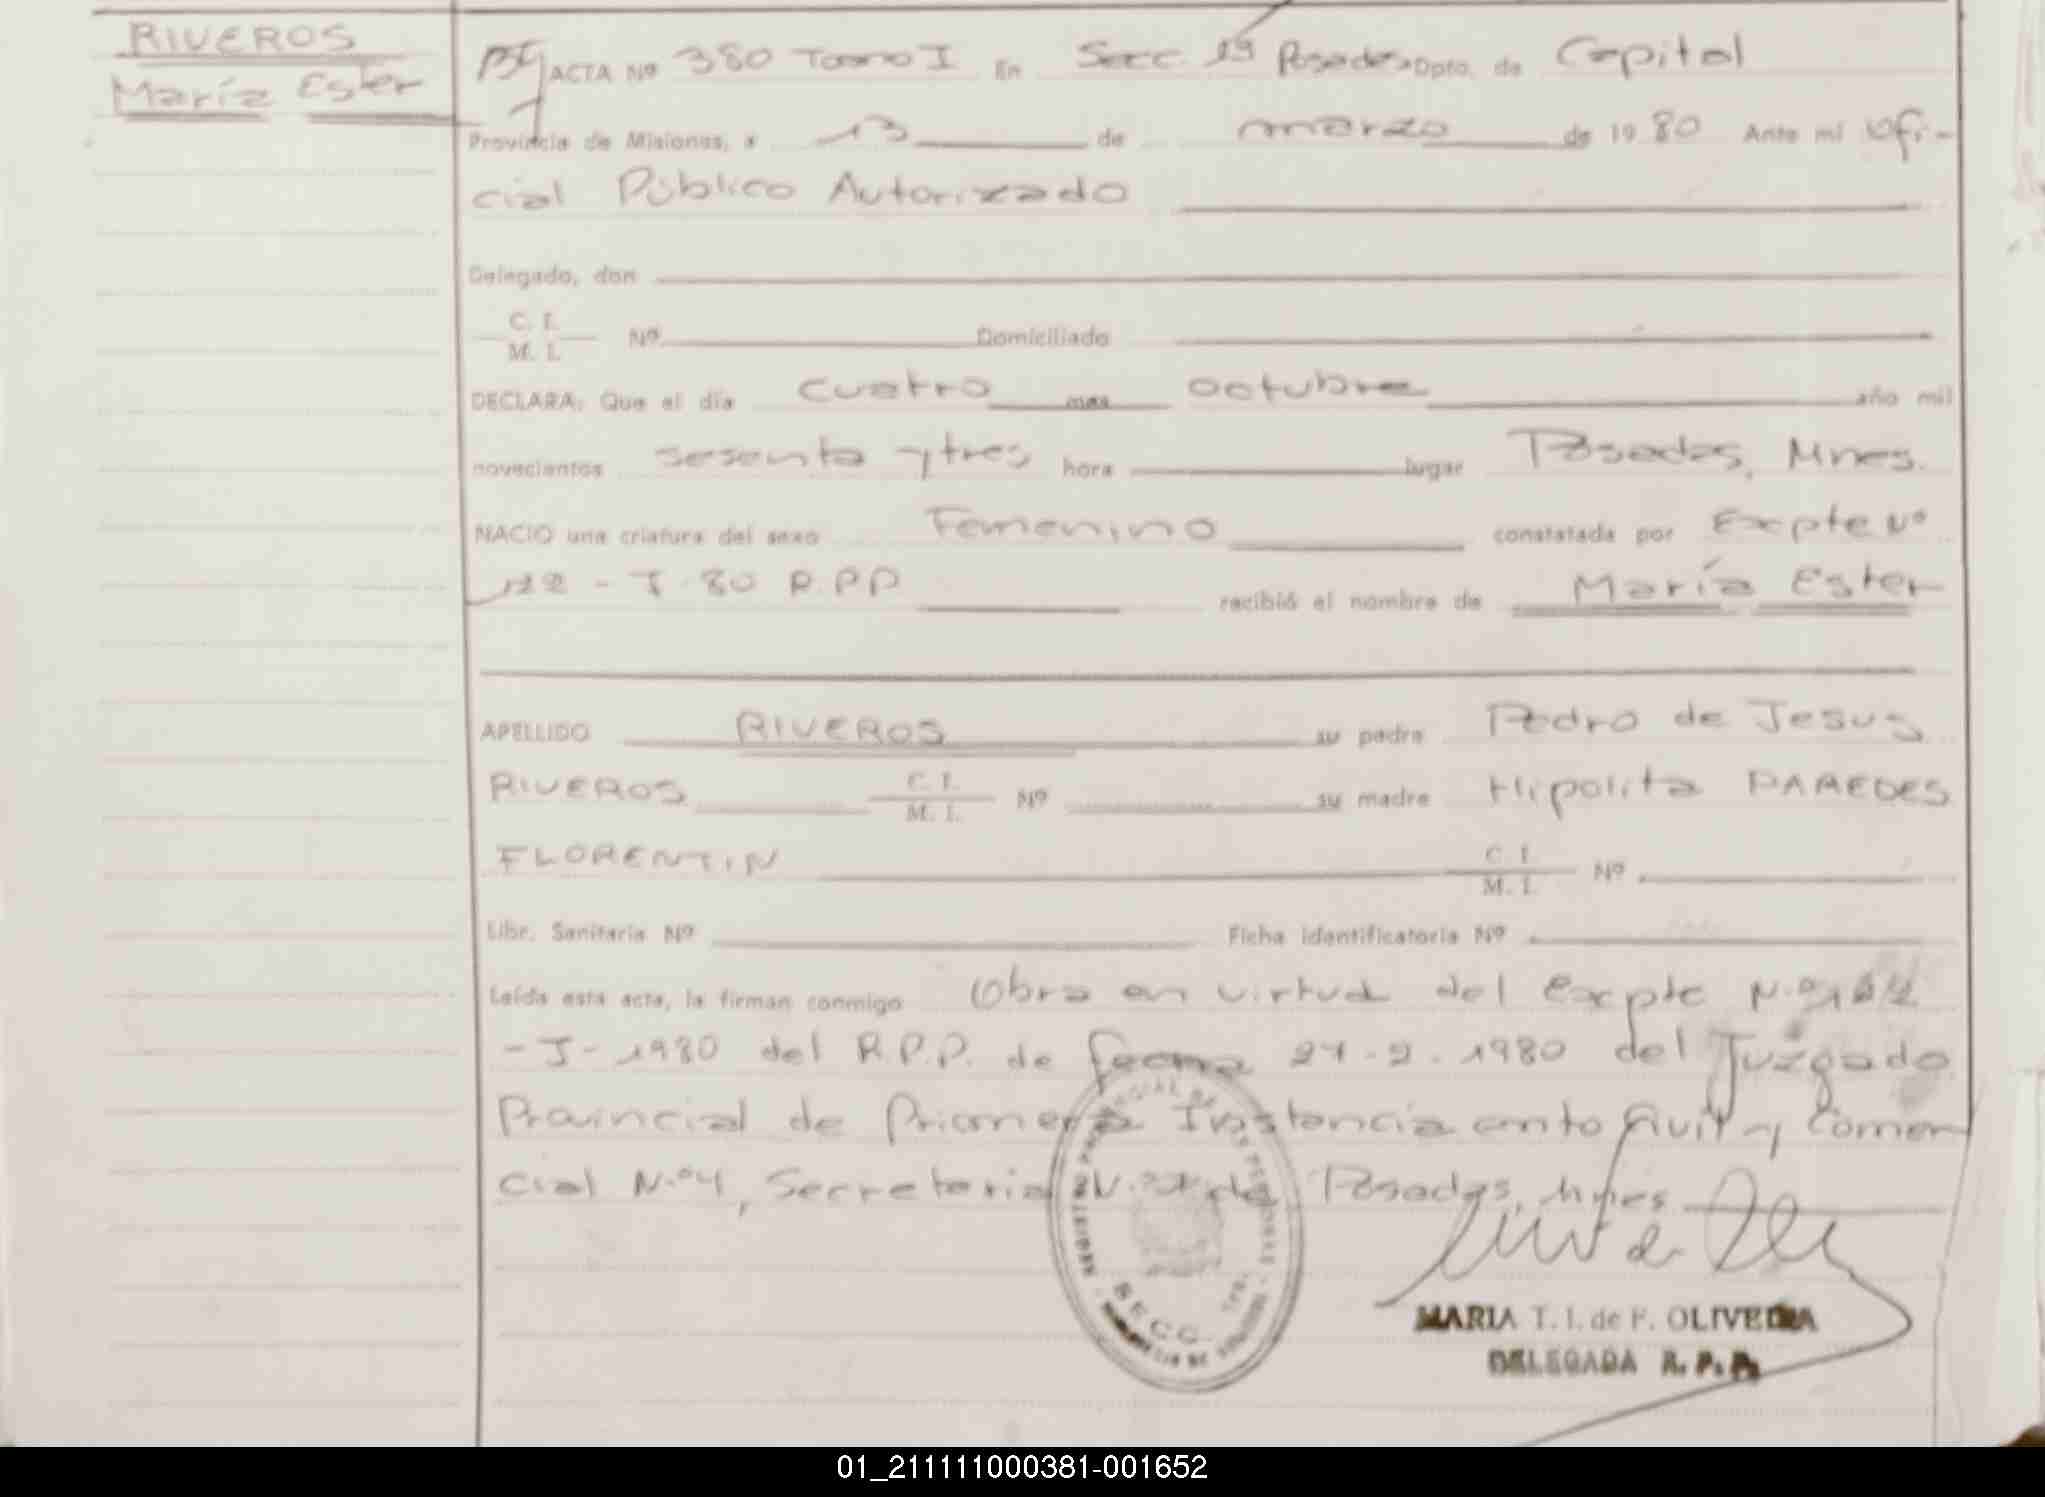 RIVEROS
María Ester
ACTA Nº 380 Tomo I En Secc. 1ª Posadas Dpto. de Capital
Provincia de Misiones, a 13 de marzo de 1980 Ante mí Ofi-
cial Público Autorizado
Delegado, don
C. I.
M. I.
Nº Domiciliado
DECLARA: Que el día cuatro mes octubre año mil
novecientos sesenta y tres hora lugar Posadas, Mnes.
NACIO una criatura del sexo Femenino constatada por Expte Nº
122 - J - 80 R.P.P recibió el nombre de María Ester
APELLIDO RIVEROS su padre Pedro de Jesus
RIVEROS C. I. M. I. Nº su madre Hipolita PAREDES
FLORENTIN C. I. M. I. Nº
Libr. Sanitaria Nº Ficha identificatoria Nº
Leída esta acta, la firman conmigo Obra en virtud del Expte N.º
- J - 1980 del R.P.P. de fecha 1980 del Juzgado
Provincial de Primera Instancia en lo Civil y Comer
cial N.º 4, Secretaria de Posadas, Mnes
MARIA T. I. de F. OLIVEIRA
DELEGADA R. P. P.
01_211111000381-001652